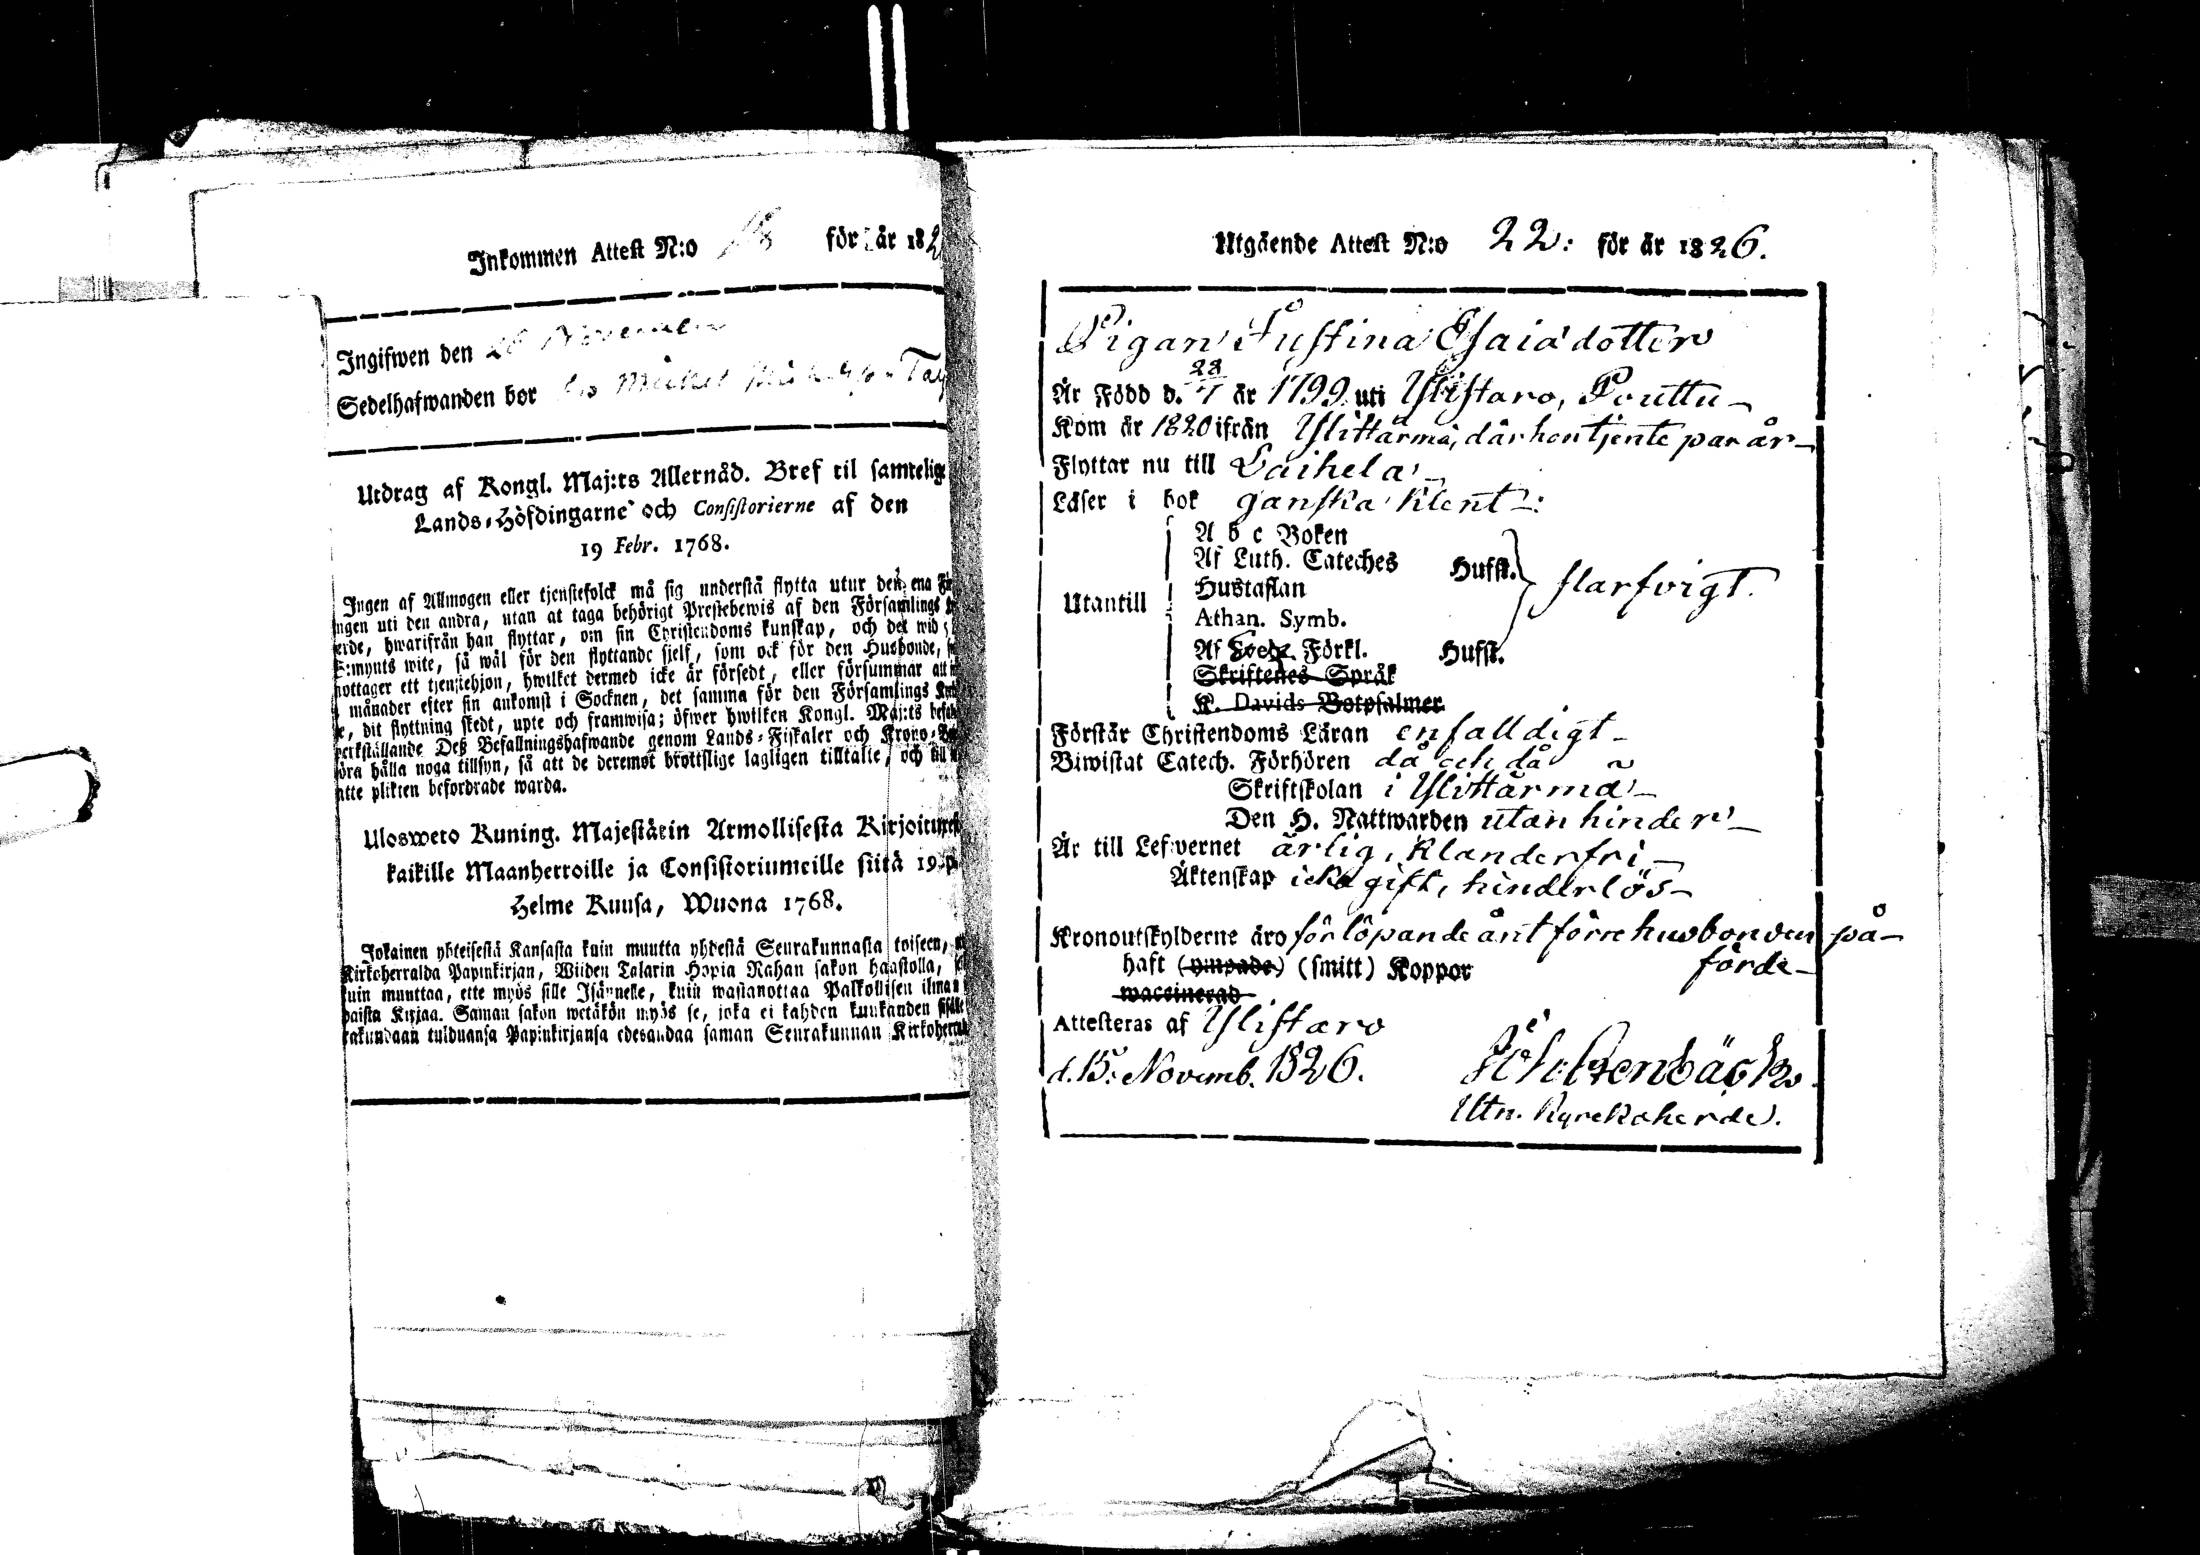 Inkommen Attest N:o för år 182
Ingifwen den 28 November
Sedelhafwanden bor hos Mickel
Utdrag af Kongl. Maj:ts Allernåd. Bref til samtelige
Lands-Höfdingarne och Consistorierne af den
19 Febr. 1768.
Ingen af Allmogen eller tjenstefolck må sig understå flytta utur den ena
ingen uti den andra, utan at taga behörigt Prestebewis af den Församlings
erde, hwarifrån han flyttar, om sin Christendoms kunskap, och det wid
S:mynts wite, så wäl för den flyttande sjelf, som ock för den Husbonde,
mottager ett tjenstehjon, hwilket dermed icke är försedt, eller försummar att
månader efter sin ankomst i Socknen, det samma för den Församlings
e, dit flyttning skedt, upte och framwisa; öfwer hwilken Kongl. Maj:ts
werkställande Deß Befallningshafwande genom Lands-Fiskaler och Krono-
öra hålla noga tillsyn, så att de deremot brottslige lagligen tilltalte, och till
atte plikten befordrade warda.
Ulosweto Kuning. Majestätin Armollisesta Kirjoituxe
kaikille Maanherroille ja Consistoriumeille siitä 19 p.
Helme Kuusa, Wuona 1768.
Jokainen yhteisestä Kansasta kuin muutta yhdestä Seurakunnasta toiseen,
Kirkoherralda Papinkirjan, Wiiden Talarin Hopia Rahan sakon haastolla,
kuin muuttaa, ette myös sille Isännelle, kuin wastanottaa Palkollisen ilman
paista Kirjaa. Saman sakon wetäkön myös se, joka ei kahden kuukauden sisälle
rakundaan tulduansa Papinkirjansa edesandaa saman Seurakunnan Kirkoherral
Utgående Attest N:o 22: för år 1826.
Pigan Justina Esaiadotter
Är Född d. 28/7 år 1799 uti Ylistaro, Pouttu
Kom år 1820 ifrån Ylihärmä, där hon tjente par år
Flyttar nu till Laihela
Läser i bok ganska klent:
A b c Boken
Af Luth. Cateches Hufst.
Hustaflan
Utantill slarfvigt.
Athan. Symb.
Af Sveb. Förkl. Hufst.
Skriftenes Språk
K. Davids Botpsalmer
Förstår Christendoms Läran enfalldigt
Biwistat Catech. Förhören då och då
Skriftskolan i Ylihärmä
Den H. Nattwarden utan hinder
Är till Lefvernet ärlig, klanderfri
Äktenskap icke gift, hinderlös
Kronoutskylderne äro för löpande året förre husbonden på-
haft (ympade) (smitt) Koppor förde
waccinerad
Attesteras af Ylistaro
d. 15. Novemb. 1826.
Utn. Kyrckoherde.